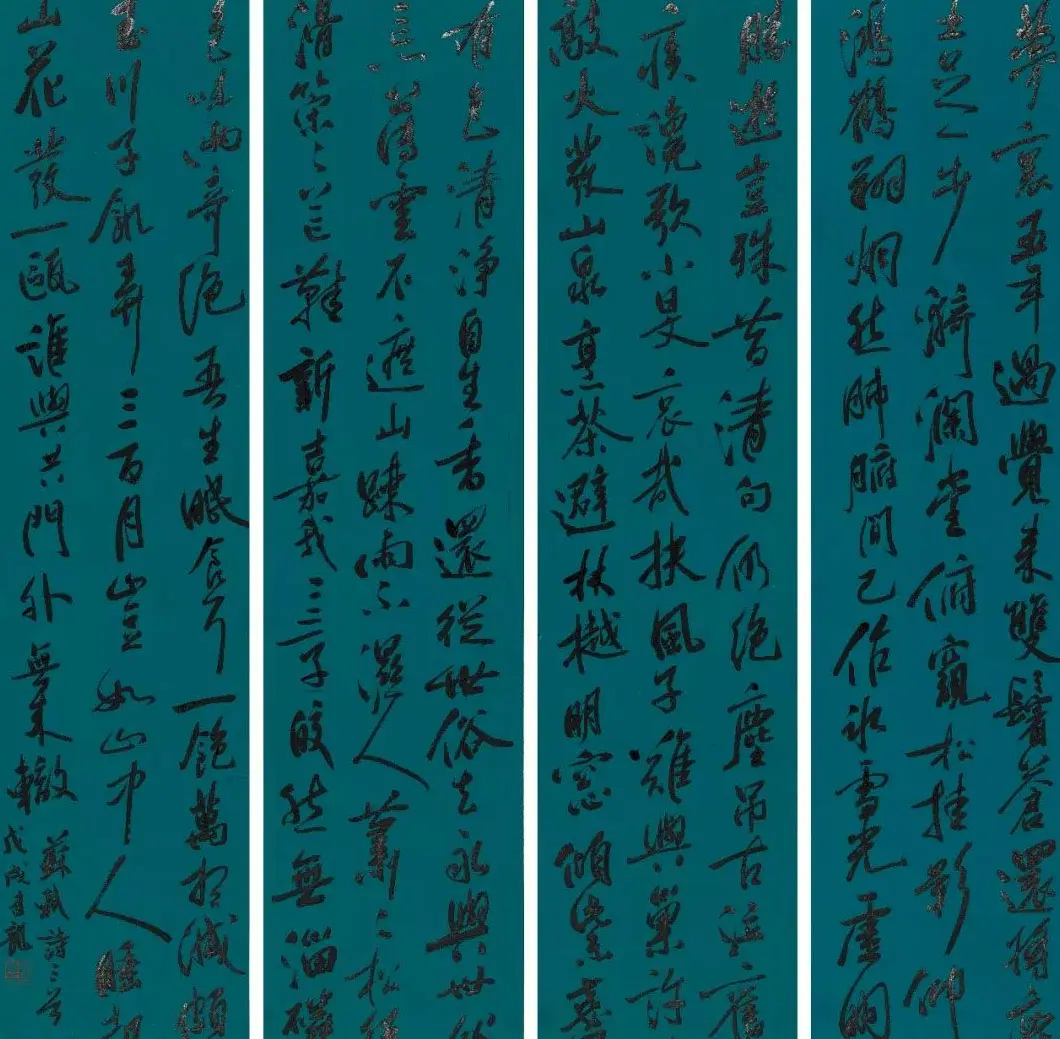 夢裏五年過覺來雙鬢蒼還將塵
土足一步漪瀾堂俯窺松桂影仰
鴻鶴翔炯然肺腑間已作冰雪光虛明
有色清淨自生香還從世俗去永與世俗
忘薄雲不遮山疎雨不濕人蕭〻松徑
滑策〻芒鞵新嘉我二三子皎然無淄磷
勝遊豈殊昔清句仍絕塵吊古泣舊
疾讒歌小旻哀哉扶風子難與巢許
敲火發山泉烹茶避林樾明窗傾紫盞
色味兩奇絕吾生眠食耳一飽萬想滅頗
玉川子飢弄三百月豈如山中人睡起
山花發一甌誰與共門外無來轍
蘇軾詩三首
戊戌